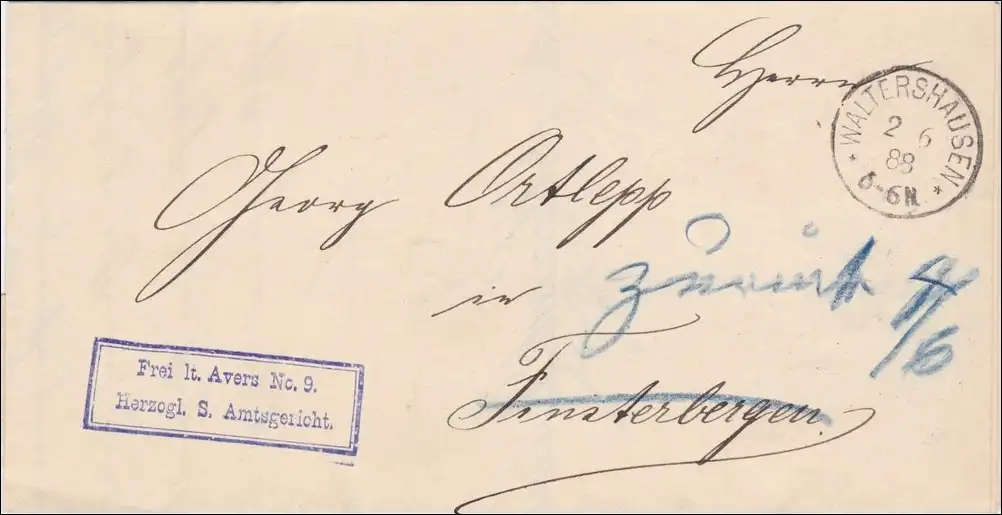 Herrn
WALTERSHAUSEN
2 6
88
5-6N.
Georg Ortlepp
in zurück 4/6
Finsterbergen.
Frei lt. Avers No. 9.
Herzogl. S. Amtsgericht.